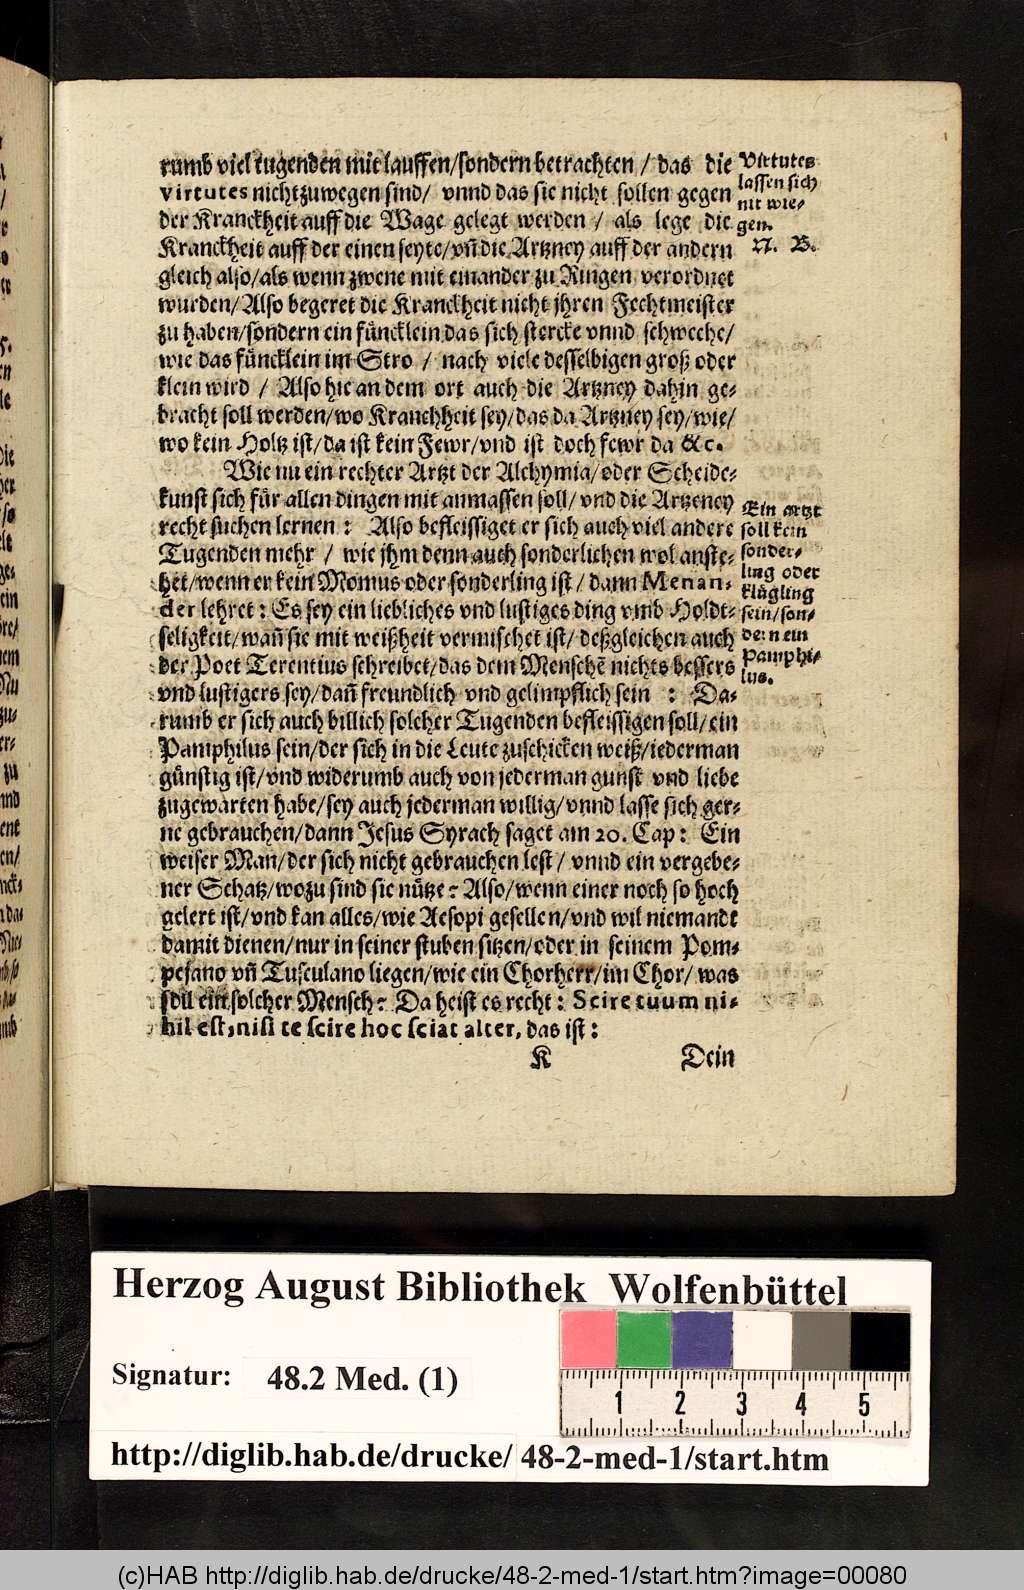 rumb viel tugenden mit lauffen/sondern betrachten / das die
virtutes nicht zuwegen sind/ vnnd das sie nicht sollen gegen
der Kranckheit auff die Wage gelegt werden / als lege die
Kranckheit auff der einen seyte/vñ die Artzney auff der andern
gleich also/als wenn zwene mit einander zu Ringen verordnet
wurden/Also begeret die Kranckheit nicht jhren Fechtmeister
zu haben/sondern ein füncklein das sich stercke vnnd schweche/
wie das füncklein im Stro / nach viele desselbigen groß oder
klein wird / Also hie an dem ort auch die Artzney dahin ge-
bracht soll werden/wo Kranchheit sey/das da Artzney sey/wie/
wo kein Holtz ist/da ist kein Fewr/vnd ist doch fewr da &c.
Wie nu ein rechter Artzt der Alchymia/oder Scheide-
kunst sich für allen dingen mit anmassen soll/vnd die Artzeney
recht suchen lernen : Also befleissiget er sich auch viel andere
Tugenden mehr / wie jhm denn auch sonderlichen wol anste-
het/wenn er kein Momus oder sonderling ist/ dann Menan-
der lehret: Es sey ein liebliches vnd lustiges ding vmb Holdt-
seligkeit/wañ sie mit weißheit vermischet ist/deßgleichen auch
der Poet Terentius schreibet/das dem Menschẽ nichts bessers
vnd lustigers sey/dañ freundlich vnd gelimpflich sein : Da-
rumb er sich auch billich solcher Tugenden befleissigen soll/ein
Pamphilus sein/der sich in die Leute zuschicken weiß/iederman
günstig ist/vnd widerumb auch von jederman gunst vnd liebe
zugewarten habe/sey auch jederman willig/vnnd lasse sich ger-
ne gebrauchen/dann Jesus Syrach saget am 20. Cap: Ein
weiser Man/der sich nicht gebrauchen lest/ vnnd ein vergebe-
ner Schatz/wozu sind sie nütze? Also/wenn einer noch so hoch
gelert ist/vnd kan alles/wie Aesopi gesellen/vnd wil niemandt
damit dienen/nur in seiner stuben sitzen/oder in seinem Pom-
pejano vñ Tusculano liegen/wie ein Chorherr/im Chor/ was
soll ein solcher Mensch? Da heist es recht: Scire tuum ni-
hil est, nisi te scire hoc sciat alter, das ist:
K Dein
Virtutes
lassen sich
nit wie-
gen.
N. B.
Ein artzt
soll kein
sonder-
ling oder
klügling
sein/son-
dern ein
Pamphi-
lus.
Herzog August Bibliothek Wolfenbüttel
Signatur: 48.2 Med. (1)
1 2 3 4 5
http://diglib.hab.de/drucke/ 48-2-med-1/start.htm
(c)HAB http://diglib.hab.de/drucke/48-2-med-1/start.htm?image=00080